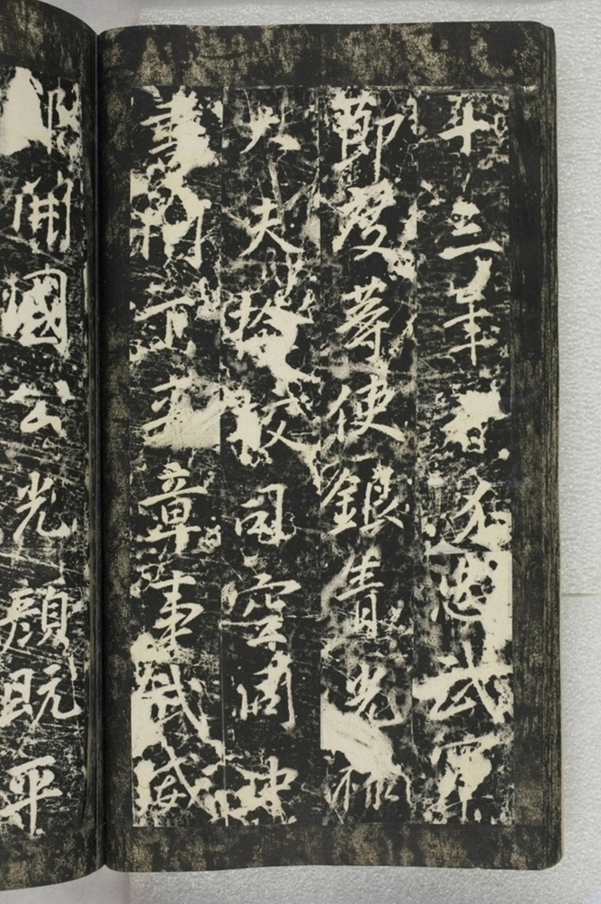 十三年春忠武軍
節度等使銀青光祿
大夫檢校司空同中
書門下平章事武威
郡開國公光顏既平